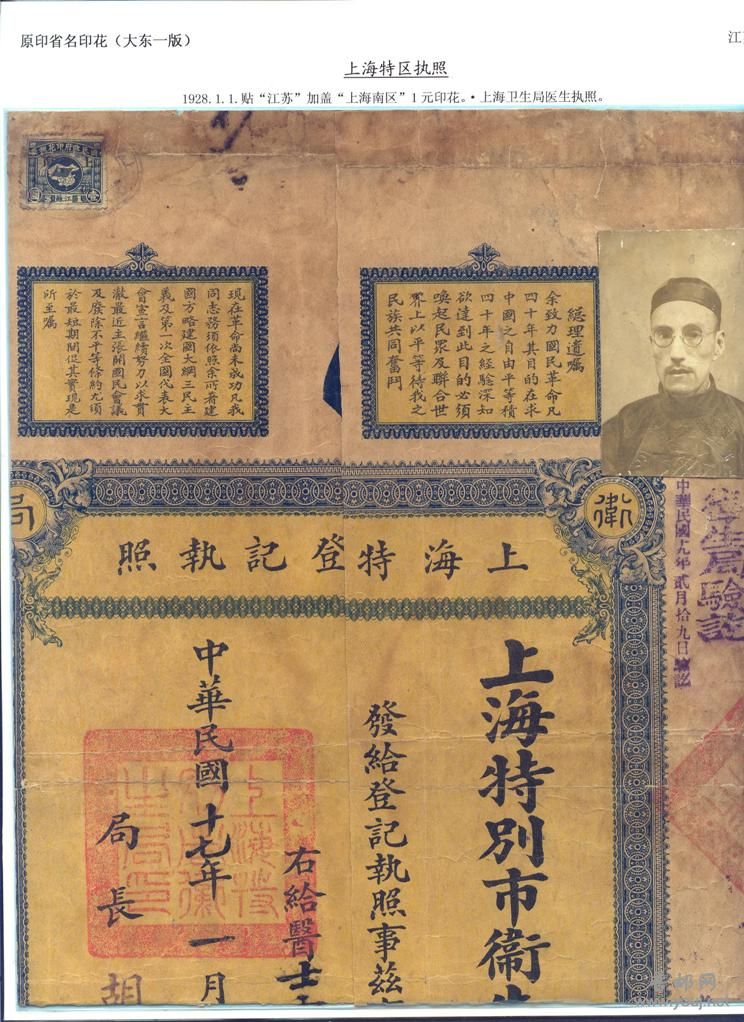 原印省名印花（大东一版）
江
上海特区执照
1928.1.1.贴“江苏”加盖“上海南区”1元印花。·上海卫生局医生执照。
總理遺囑
余致力國民革命凡
四十年其目的在求
中國之自由平等積
四十年之經驗深知
欲達到此目的必須
喚起民眾及聯合世
界上以平等待我之
民族共同奮鬥
現在革命尚未成功凡我
同志務須依照余所著建
國方略建國大綱三民主
義及第一次全國代表大
會宣言繼續努力以求貫
澈最近主張開國民會議
及廢除不平等條約尤須
於最短期間促其實現是
所至囑
衛
局
上海特登記執照
上海特別市衛生
發給登記執照事茲
右給醫士
中華民國十七年一月
局長
胡
生局驗訖
中華民國九年貳月拾九日